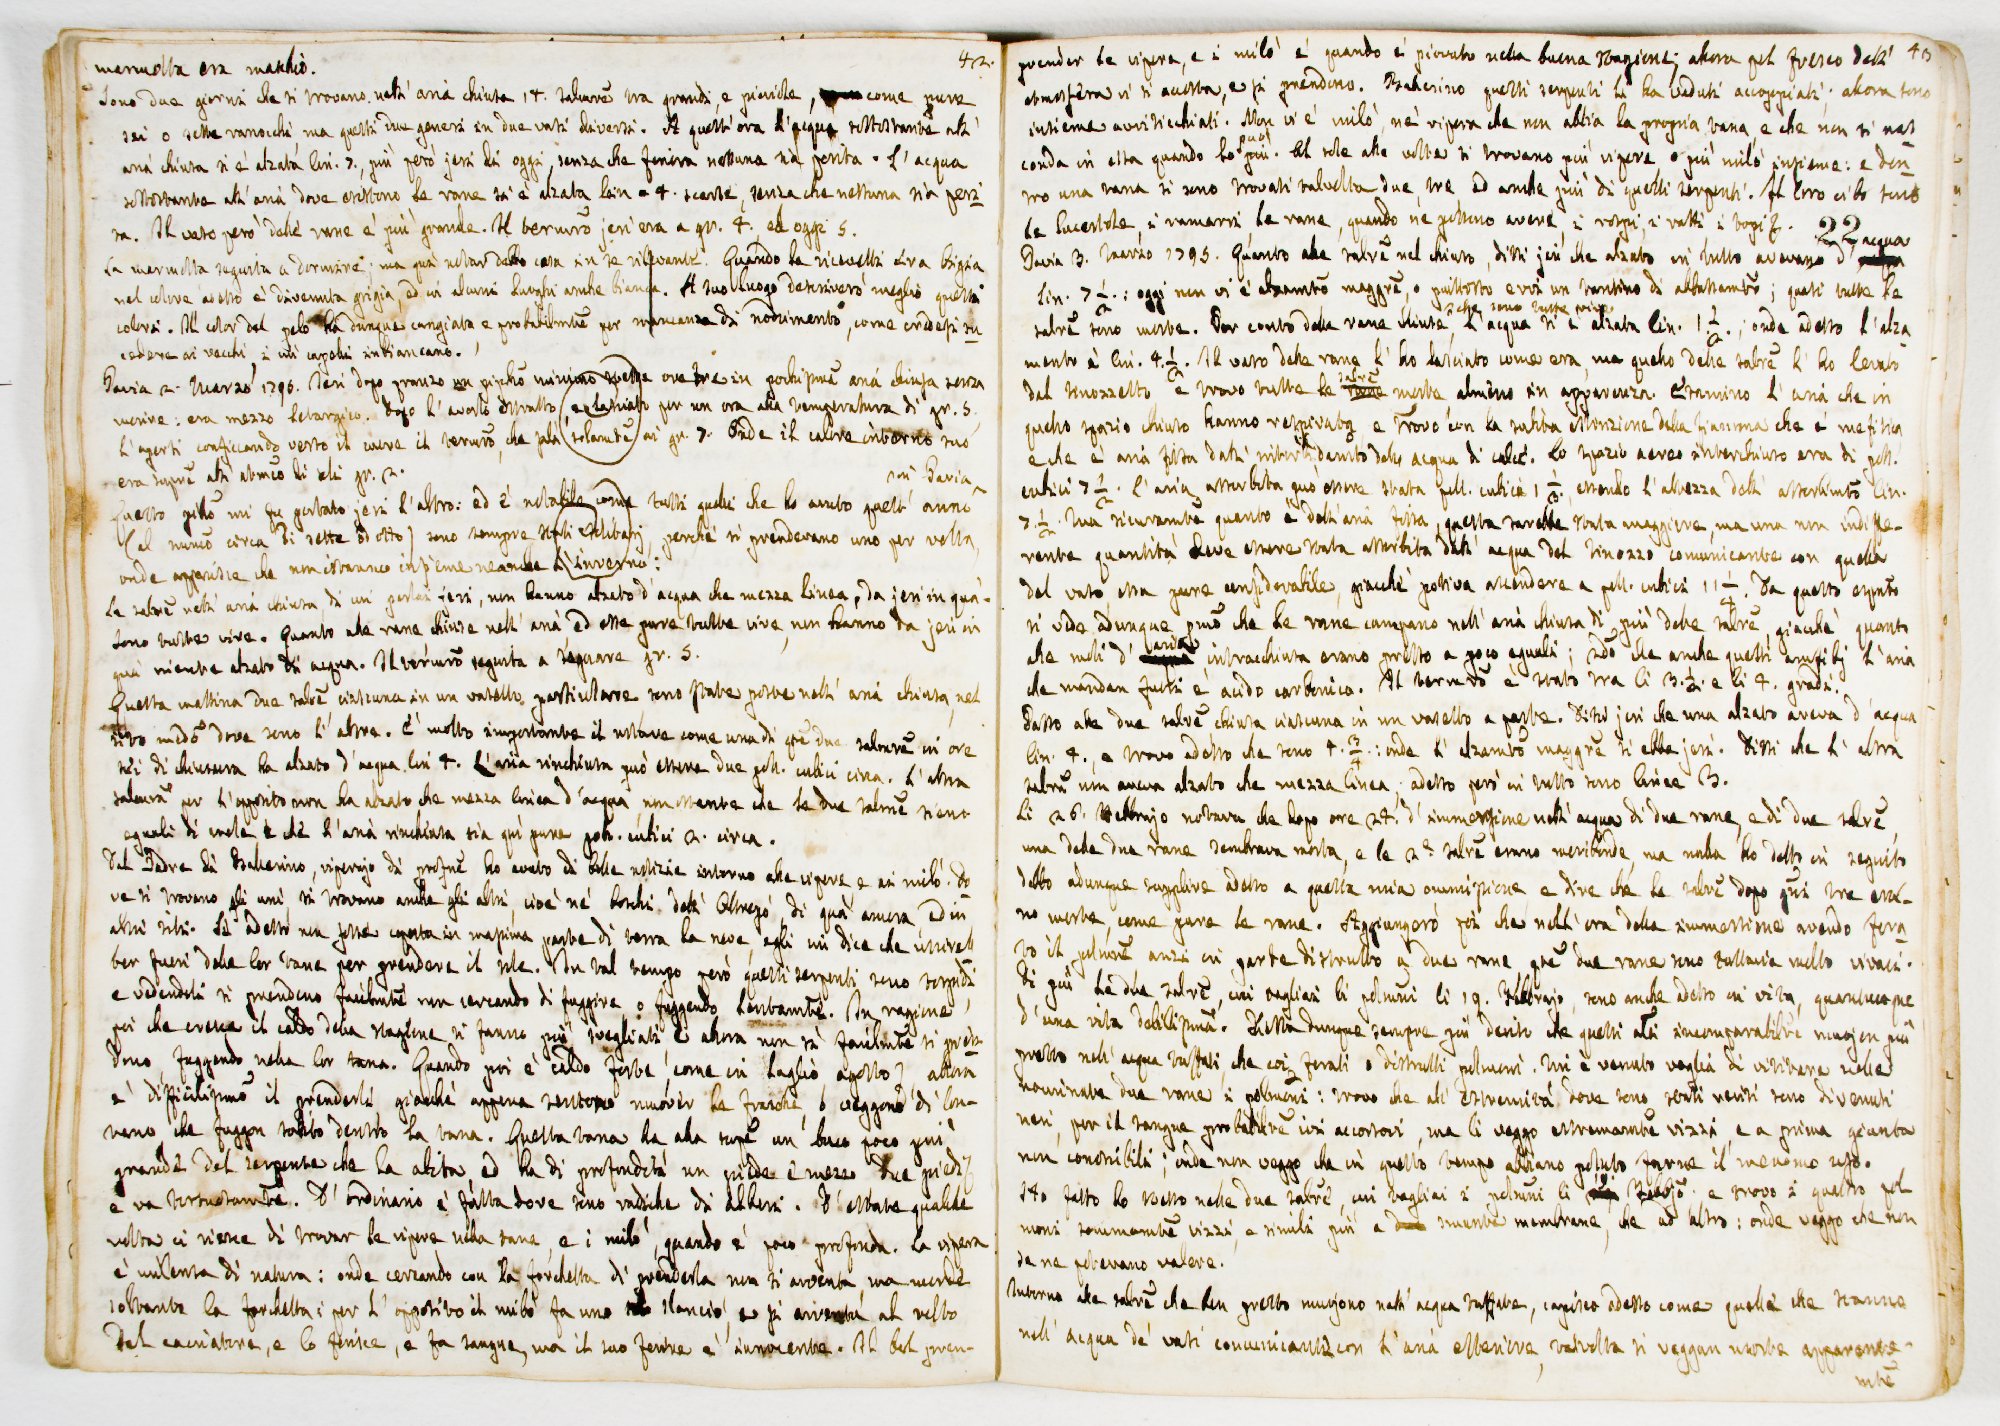 42.
marmotta era maschio.
Sono due giorni che si trovano nell' aria chiusa 14. salam̃e tra grandi, e piccole, come pure
sei o sette ranocchi ma questi due generi in due vasi diversi. A quest' ora l' acqua sottostante all'
aria chiusa si è alzata lin. 7., più però jeri di oggi, senza che finora nessuna sia perita. L' acqua
sottostante all' aria dove esistono le rane si è alzata lin. 4. scarse, senza che nessuna sia peri-
ta. Il vaso però delle rane è più grande. Il termrõ jeri era a gr. 4., ed oggi 5.
La marmotta seguita a dormire; ma qui notar debbo cosa in se rilevante. Quando la ricevetti era bigia
nel colore adesso è divenuta grigia, ed in alcuni luoghi anche bianca. A suo luogo descriverò meglio questi
colori. Il color del pelo ha dunque cangiato e probabilmtẽ per mancanza di nodrimento, come credesi su-
cedere ai vecchi i cui capelli imbiancano.
Pavia 2. Marzo 1795. Jeri dopo pranzo un pipistrõ ore tre in pochissima aria chiusa senza
morire: era mezzo letargico. Dopo l' averlo estratto e lasciato per un ora alla temperatura di gr. 5.
l' apersi conficcando verso il cuore il termrõ, che salì solamtẽ ai gr. 7. Onde il calore interno suo
era sopra all' atmco di soli gr. 2.
Questo pillo mi fu portato jeri l' altro: ed è notabile come tutti quelli che ho avuto quest' anno
in Pavia
(al numrõ circa di sette od otto) sono sempre stati solitarj, perchè si prendevano uno per volta,
onde apparisce che non istanno insieme neanche l' inverno:
Le salam̃e nell' aria chiusa di cui parlai jeri, non hanno alzato d' acqua che mezza linea, da jeri in quà.
Sono tutte vive. Quanto alle rane chiuse nell' aria, ed esse pure tutte vive, non hanno da jeri in
quà niente alzato di acqua. Il termrõ seguita a segnare gr. 5.
Questa mattina due salrẽ ciascuna in un vasetto particolare sono state poste nell' aria chiusa, nel
sito medõ dove sono l' altre. È molto importante il notare come una di qtẽ due salamrẽ in ore
sei di chiusura ha alzato d' acqua lin. 4. L' aria rinchiusa può essere due poll. cubici circa. L' altra
salamrã per l' opposito non ha alzato che mezza linea d' acqua non ostante che le due salmrẽ sieno
eguali di mole e che l' aria rinchiusa sia qui pure poll. cubici 2. circa.
Dal Padre di Balterino, viperajo di profnẽ ho avuto di belle notizie intorno alle vipere e ai milò. Do-
ve si trovano gli uni si trovano anche gli altri, cioè nè boschi dell' Oltrepò, di quà ancora, ed in
altri siti. Se adesso non fosse coperta in massima parte di terra la neve, egli mi dice che uscireb-
ber fuori dalle lor tane per prendere il sole. In tal tempo però questi serpenti sono torpidi
e vedendoli si prendono facilmtẽ non cercando di fuggire o fuggendo lentamtẽ. In ragione
poi che cresce il caldo della stagione si fanno più svegliati e allora non sì facilmtẽ si pren-
dono, fuggendo nella lor tana. Quando poi è caldo forte (come in Luglio agosto) allora
è difficilissimo il prenderli giacchè appena sentono muover le frasche, o veggono di lon-
tano, che fuggon tosto dentro la tana. Questa tana ha alla supẽ un buco poco più
grande del serpente che la abita ed ha di profondità un piede e mezzo due piedi
e va tortuosamtẽ. D' ordinario è fatta dove sono radiche di alberi. D' estate qualche
volta ci riesce di trovar le vipere nella tana, e i milò, quando è poco profonda. La vipera
è violenta di natura: onde cercando con la forchetta di prenderla non si avventa, ma morde
soltanto la forchetta; per l' opposito il milò fa uno slancio e si avventa al volto
del cacciatore, e lo ferisce, e fa sangue, ma il suo ferire è innocente. Il bel pren-
43
prender le vipere, e i milò è quando è piovuto nella buona stagione; allora pel fresco dell'
atmosfera vi si accosta, e si prendono. Balterino questi serpenti li ha veduti accoppiati; allora sono
insieme avviticchiati. Non vi è milò, nè vipera che non abbia la propria tana e che non si nas-
conda in essa quando lo può più. Al sole alle volte si trovano più vipere o più milò insieme: e den-
tro una tana si sono trovati talvolta due, tre ed anche più di questi serpenti. Il loro cibo sono
le lucertole, i ramarri le rane, quando ne possono avere, i rospi, i ratti i topi &.
22
Pavia 3. Marzo 1795. Quanto alle salrẽ nel chiuso, dissi jeri che alzato in tutto avevano d' acqua
lin. 7 1/2.: oggi non vi è alzamtõ maggrẽ, o piuttosto evvi un tantino di abbassamtõ; quasi tutte le
salrẽ sono morte. Per conto delle rane chiuse, che sono tutte vive l' acqua si è alzata lin. 1/2.; onde adesso l' alza-
mento è lin. 4 1/2. Il vaso delle rane l' ho lasciato come era, ma quello delle salrẽ l' ho levato
dal tinozzetto e trovo tutte le salrẽ morte almeno in apparenza. Esamino l' aria che in
quello spazio chiuso hanno respirato, e trovo con la subita estinzione della fiamma che è mefitica
e che è aria fissa dall' intorbidamtõ dell' acqua di calce. Lo spazio aereo interchiuso era di poll.
cubici 7 1/2. L' aria assorbita può essere stata poll. cubici 1 1/2. essendo l' altezza dell' assorbimtõ lin.
7 1/2. Ma sicuramtẽ quanto è dell' aria fissa, questa sarebbe stata maggiore, ma una non indiffe-
rente quantità deve essere stata assorbita dall' acqua del tinozzo comunicante con quella
del vaso essa pure considerabile, giacchè poteva ascendere a poll. cubici 11 1/4. Da questo esperto
si vede adunque, primõ che le rane campano nell' aria chiusa di più delle salrẽ, giacchè quanto
che moli d' aria intracchiusa erano presso a poco eguali; 2dõ che anche questi amfibj l' aria
che mandan fuori è acido carbonico. Il termrõ è stato tra li 3 1/2. e li 4. gradi.
Passo alle due salrẽ chiuse ciascuna in un vasetto a parte. Dissi jeri che una alzato aveva d' acqua
lin. 4., e trovo adesso che sono 4. 3/4.: onde l' alzamtõ maggrẽ si ebbe jeri. Dissi che l' altra
salrã non aveva alzato che mezza linea; adesso però in tutto sono linee 3.
Li 26. Febbrajo notava che dopo ore 24. d' immersione nell' acqua di due rane, e di due salrẽ,
una delle due rane sembrava morta, e le 2ẽ salrẽ erano moribonde, ma nulla ho detto in seguito
debbo adunque supplire adesso a questa mia ommissione e dire che le salrẽ dopo gni tre era-
no morte, come pure le rane. Aggiungerò poi che nell' ora della immersione avendo fora-
to il polmnẽ anzi in parte distrutto a due rane qtẽ due rane sono tuttavia molto vivaci.
Di più le due salrẽ, cui tagliai li polmni li 19. Febbrajo, sono anche adesso in vita, quantunque
d' una vita debilissimã. Resta dunque sempre più deciso che questi ali incomparabiltẽ muojon più
presto nell' acqua tuffati, che coi forati o distrutti polmoni. Mi è venuto voglia di visitare nelle
nominate due rane i polmoni: trovo che all' estremità dove sono stati recisi sono divenuti
neri, per il sangue probabiltẽ ivi accorsovi, ma li veggo estremamtẽ vizzi e a prima giunta
non conoscibili; onde non veggo che in questo tempo abbiano potuto farne il menomo uso.
Ho fatto lo stesso nelle due salrẽ, cui tagliai i polmoni li Febbrjõ. e trovo i questo pol-
moni sommamtẽ vizzi, e simili più a smunte membrane, che ad altro: onde veggo che non
se ne potevano valere.
Intorno alle salrẽ che ben presto muojono nell' acqua tuffate, capisco adesso come quelle che stanno
nell' acqua de' vasi comunicanti con l' aria esteriore, talvolta si veggan morte apparente-
mtẽ